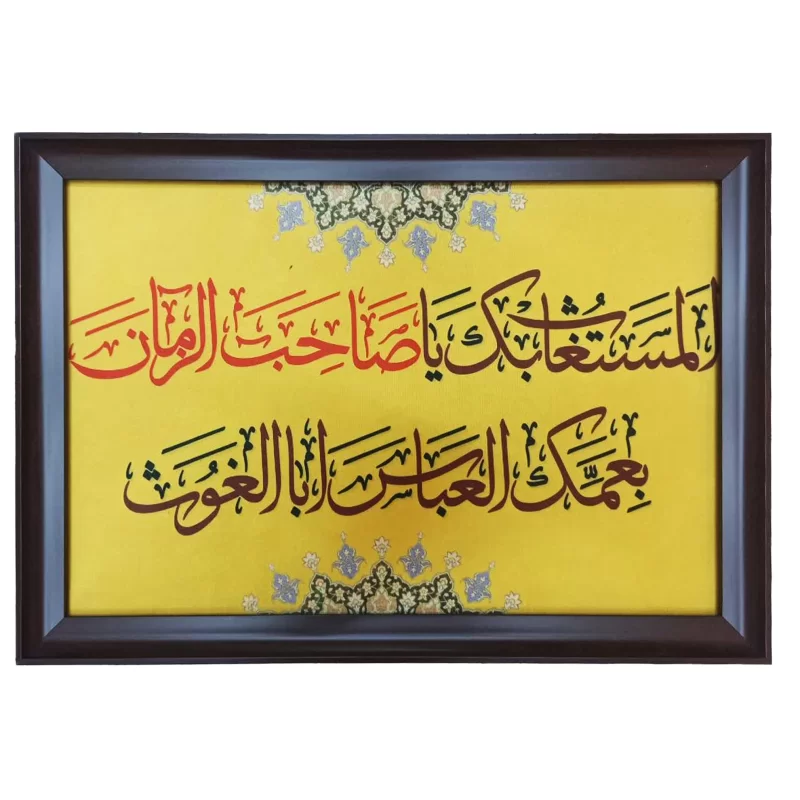 المستغاث بك يا صاحب الزمان
بعمك العباس ابا الغوث